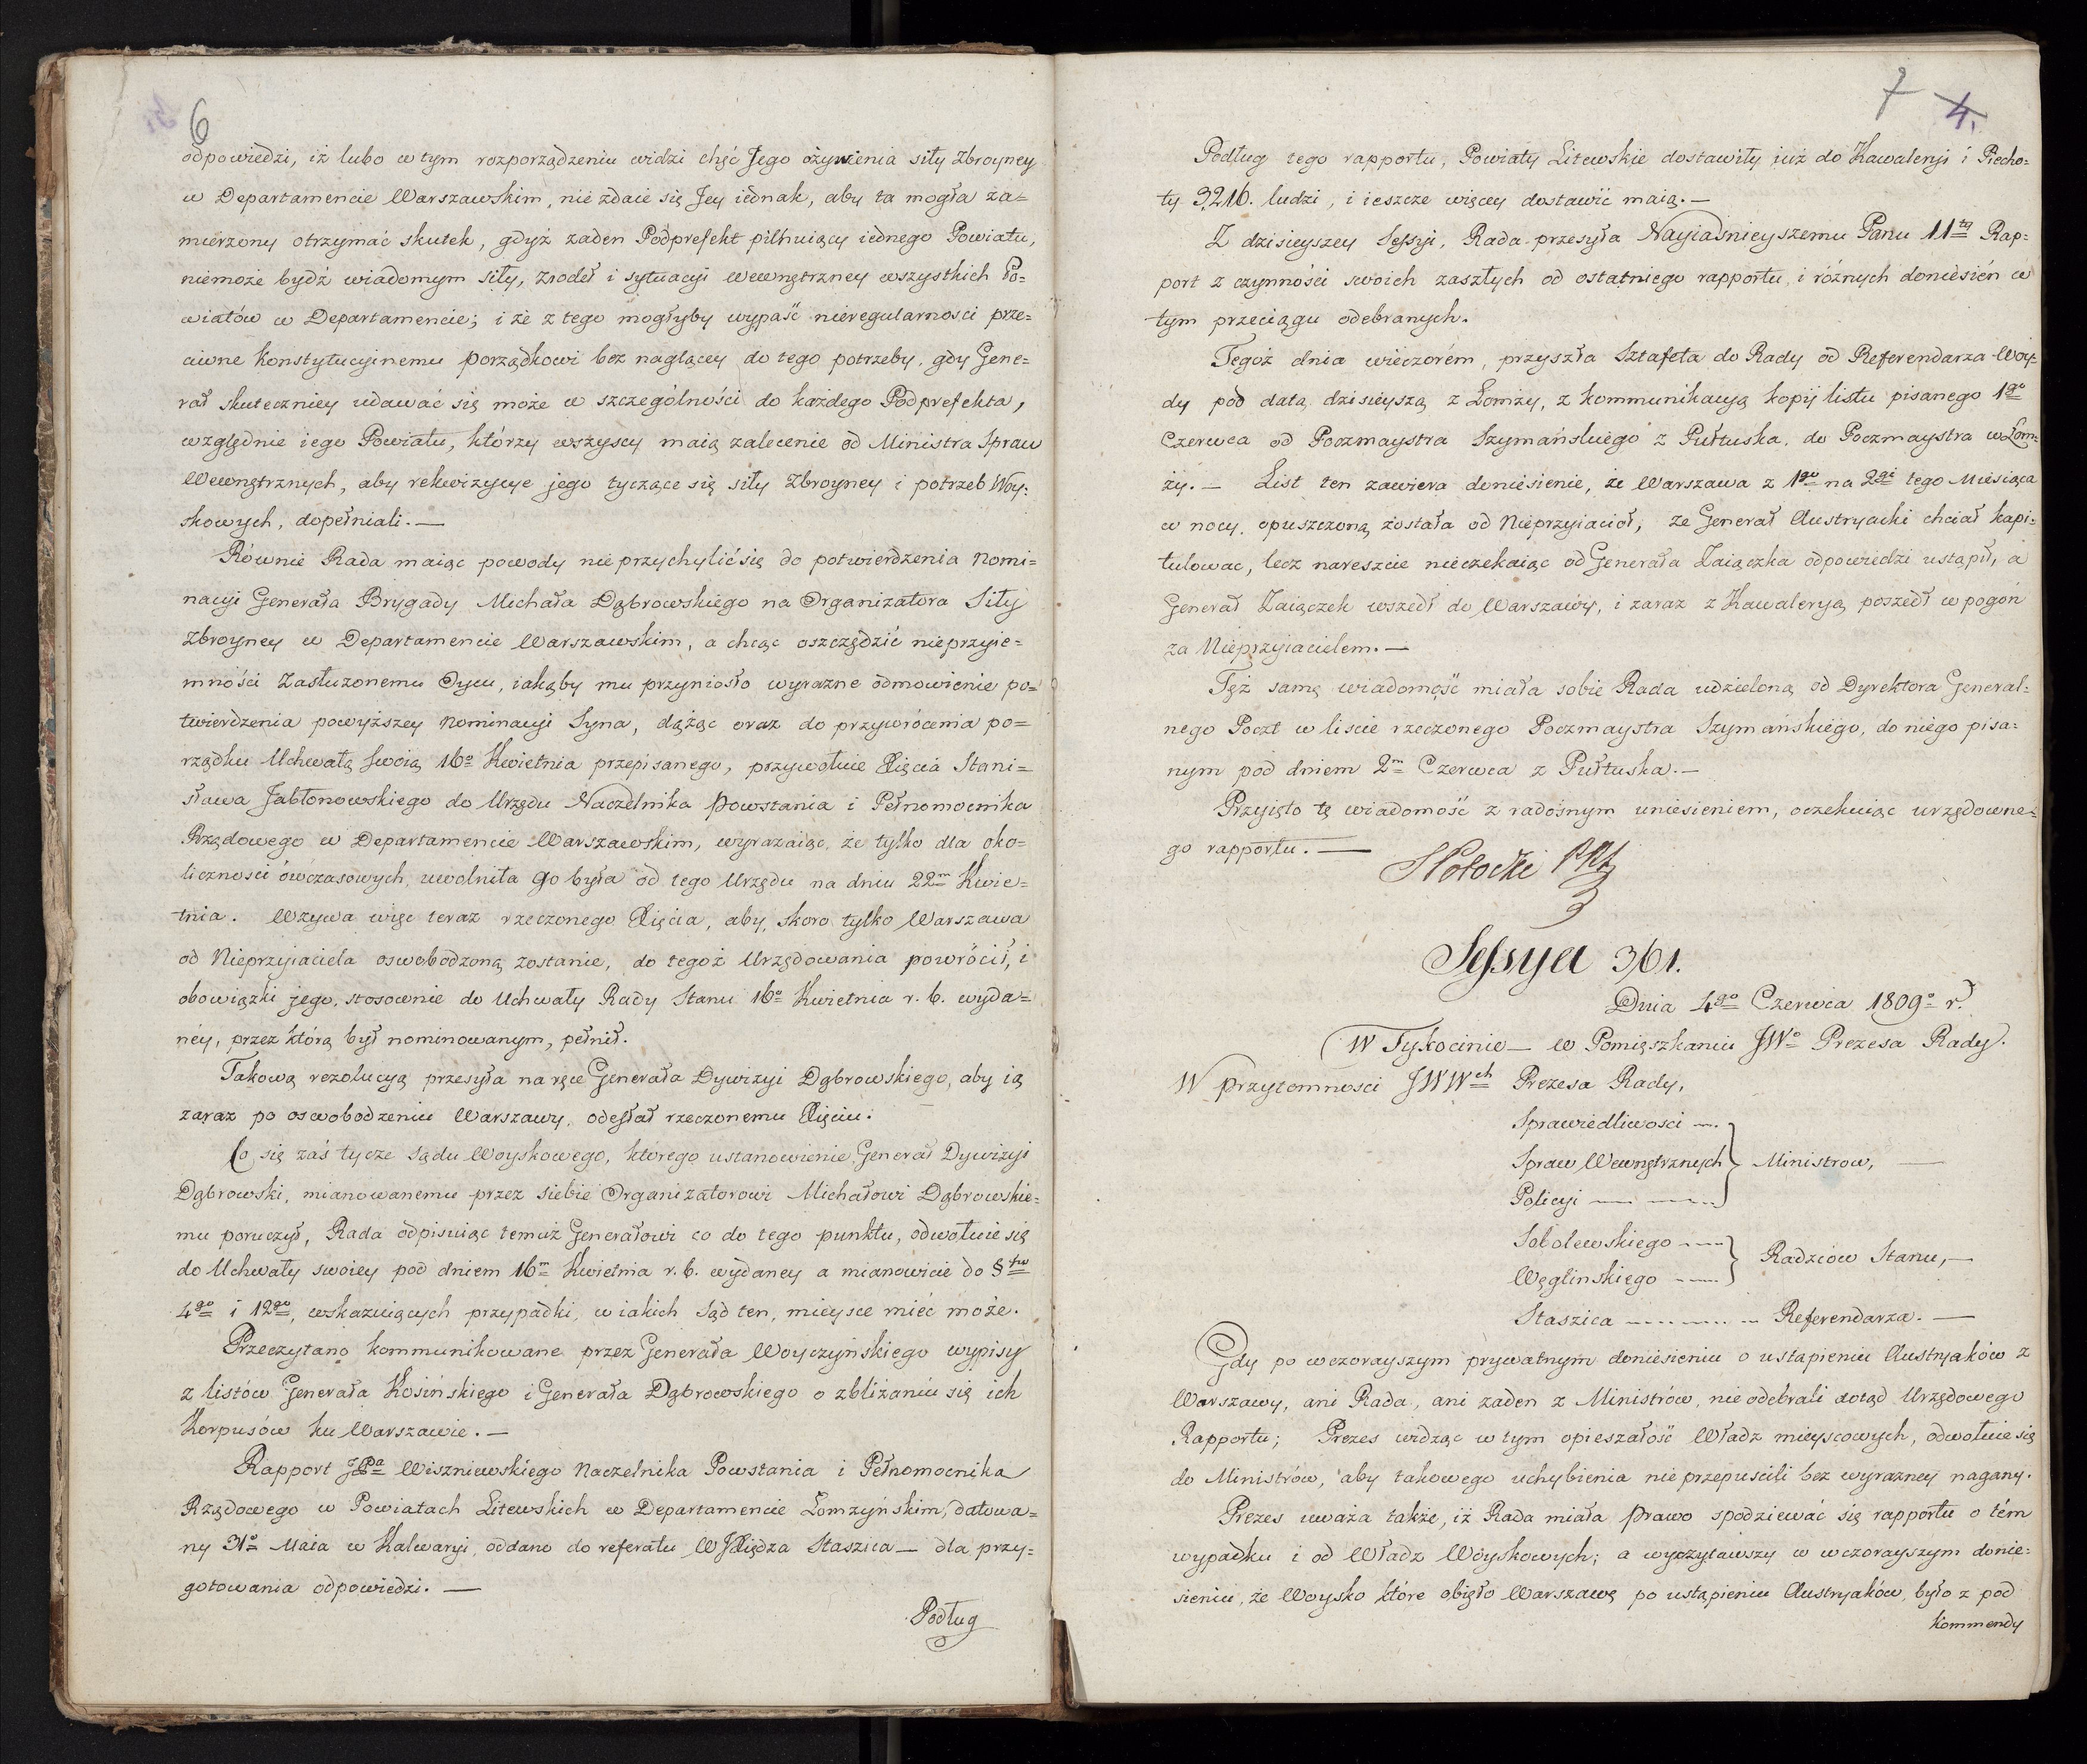 6
odpowiedzi, iż lubo w tym rozporządzeniu widzi chęć Jego ożywienia siły Zbroyney
w Departamencie Warszawskim, nie zdaie się Jey iednak, aby ta mogła za=
mierzony otrzymać skutek, gdyż zaden Podprefekt pilnuiący iednego Powiatu,
niemoże bydź wiadomym siły, zrodeł i sytuacyi wewnętrzney wszystkich Po=
wiatów w Departamencie; i że z tego mogłyby wypaść nieregularnosci prze=
ciwne konstytucyinemu porządkowi bez naglącey do tego potrzeby, gdy Gene=
rał skuteczniey udawać się może w szczególności do każdego Podprefekta,
względnie iego Powiatu, którzy wszyscy maią zalecenie od Ministra Spraw
Wewnętrznych, aby rekwizycye jego tyczące się siły Zbroyney i potrzeb Woy=
skowych, dopełniali. —
Równie Rada maiąc powody nie przychylić się do potwierdzenia Nomi=
nacyi Generała Brygady Michała Dąbrowskiego na Organizatora Siły
Zbroyney w Departamencie Warszawskim, a chcąc oszczędzić nieprzyie=
mności Zasłużonemu Oycu, iakąby mu przyniosło wyrazne odmowienie po=
twierdzenia powyższey Nominacyi Syna, dążąc oraz do przywrócenia po=
rządku Uchwałą swoią 16º Kwietnia przepisanego, przywołuie Xięcia Stani=
sława Jabłonowskiego do Urzędu Naczelnika Powstania i Pełnomocnika
Rządowego w Departamencie Warszawskim, wyrazaiąc, że tylko dla oko=
liczności ówczasowych, uwolniła go była od tego Urzędu na dniu 22m Kwie=
tnia. Wzywa więc teraz rzeczonego Xięcia, aby, skoro tylko Warszawa
od Nieprzyiaciela oswobodzoną zostanie, do tegoż Urzędowania powrócił, i
obowiązki jego, stosownie do Uchwały Rady Stanu 16º Kwietnia r. b. wyda=
néy, przez którą był nominowanym, pełnił.
Takową rezolucyą przesyła na ręce Generała Dywizyi Dąbrowskiego, aby ią
zaraz po oswobodzeniu Warszawy, odesłał rzeczonemu Xięciu.
Co się zaś tycze Sądu Woyskowego, którego ustanowienie Generał Dywizyi
Dąbrowski, mianowanemu przez siebie Organizatorowi Michałowi Dąbrowskie=
mu poruczył, Rada odpisuiąc temuż Generałowi co do tego punktu, odwołuie się
do Uchwały swoiey pod dniem 16m Kwietnia r. b. wydaney a mianowicie do § fw
4go i 12go, wskazuiących przypadki, w iakich Sąd ten, mieysce mieć może.
Przeczytano kommunikowane przez Generała Woyczyńskiego wypisy
z listów Generała Kosińskiego i Generała Dąbrowskiego o zbliżaniu się ich
Korpusów ku Warszawie. —
Rapport JPa Wiszniewskiego Naczelnika Powstania i Pełnomocnika
Rządowego w Powiatach Litewskich w Departamencie Łomżyńskim, datowa=
ny 31º Maia w Kalwaryi, oddano do referatu WJXiędza Staszica — dla przy=
gotowania odpowiedzi. —
Podług
7 4.
Podług tego rapportu, Powiaty Litewskie dostawiły już do Kawaleryi i Piecho=
ty 3216. ludzi, i ieszcze więcey dostawić maią. —
Z dzisieyszey Sessyi, Rada przesyła Nayiaśnieyszemu Panu 11ty Rap=
port z czynności swoich zaszłych od ostatniego rapportu, i różnych doniesień w
tym przeciągu odebranych.
Tegoż dnia wieczorém, przyszła Sztafeta do Rady od Referendarza Woy=
dy pod datą dzisieyszą z Łomży, z kommunikacyą kopij listu pisanego 1go
Czerwca od Poczmaystra Szymańskiego z Pułtuska, do Poczmaystra w Łom=
ży. — List ten zawiera doniesienie, że Warszawa z 1go na 2gi tego Miesiąca
w nocy, opuszczoną została od Nieprzyiacioł, że Generał Austryacki chciał kapi=
tulowac, lecz nareszcie nieczekaiąc od Generała Zaiączka odpowiedzi ustąpił, a
Generał Zaiączek wszedł do Warszawy, i zaraz z Kawaleryą poszedł w pogoń
za Nieprzyiacielem. —
Tęż samę wiadomość miała sobie Rada udzieloną od Dyrektora General=
nego Poczt w liscie rzeczonego Poczmaystra Szymańskiégo, do niego pisa=
nym pod dniem 2m Czerwca z Pułtuska. —
Przyięto tę wiadomość z radosnym uniesieniem, oczekuiąc urzędowne=
go rapportu. —
SPotocki
Sessya 361.
Dnia 4go Czerwca 1809º r.
W Tykocinie — w Pomięszkaniu JWº Prezesa Rady.
W przytomnosci JWWch Prezesa Rady,
Sprawiedliwosci
Spraw Wewnętrznych } Ministrow, —
Policyi
Sobolewskiego
Węglinskiego } Radzców Stanu, —
Staszica ........ Referendarza. —
Gdy po wczorayszym prywatnym doniesieniu o ustąpieniu Austryaków z
Warszawy, ani Rada, ani zaden z Ministrów, nie odebrali dotąd Urzędowego
Rapportu; Prezes widząc w tym opieszałość Władz mieyscowych, odwołuie się
do Ministrów, aby takowego uchybienia nie przepuscili bez wyrazney nagany.
Prezes uważa także, iż Rada miała prawo spodziewać się rapportu o tém
wypadku i od Władz Woyskowych; a wyczytawszy w wczorayszym donie=
sieniu, że Woysko które obięło Warszawę po ustąpieniu Austryaków, było z pod
kommendy